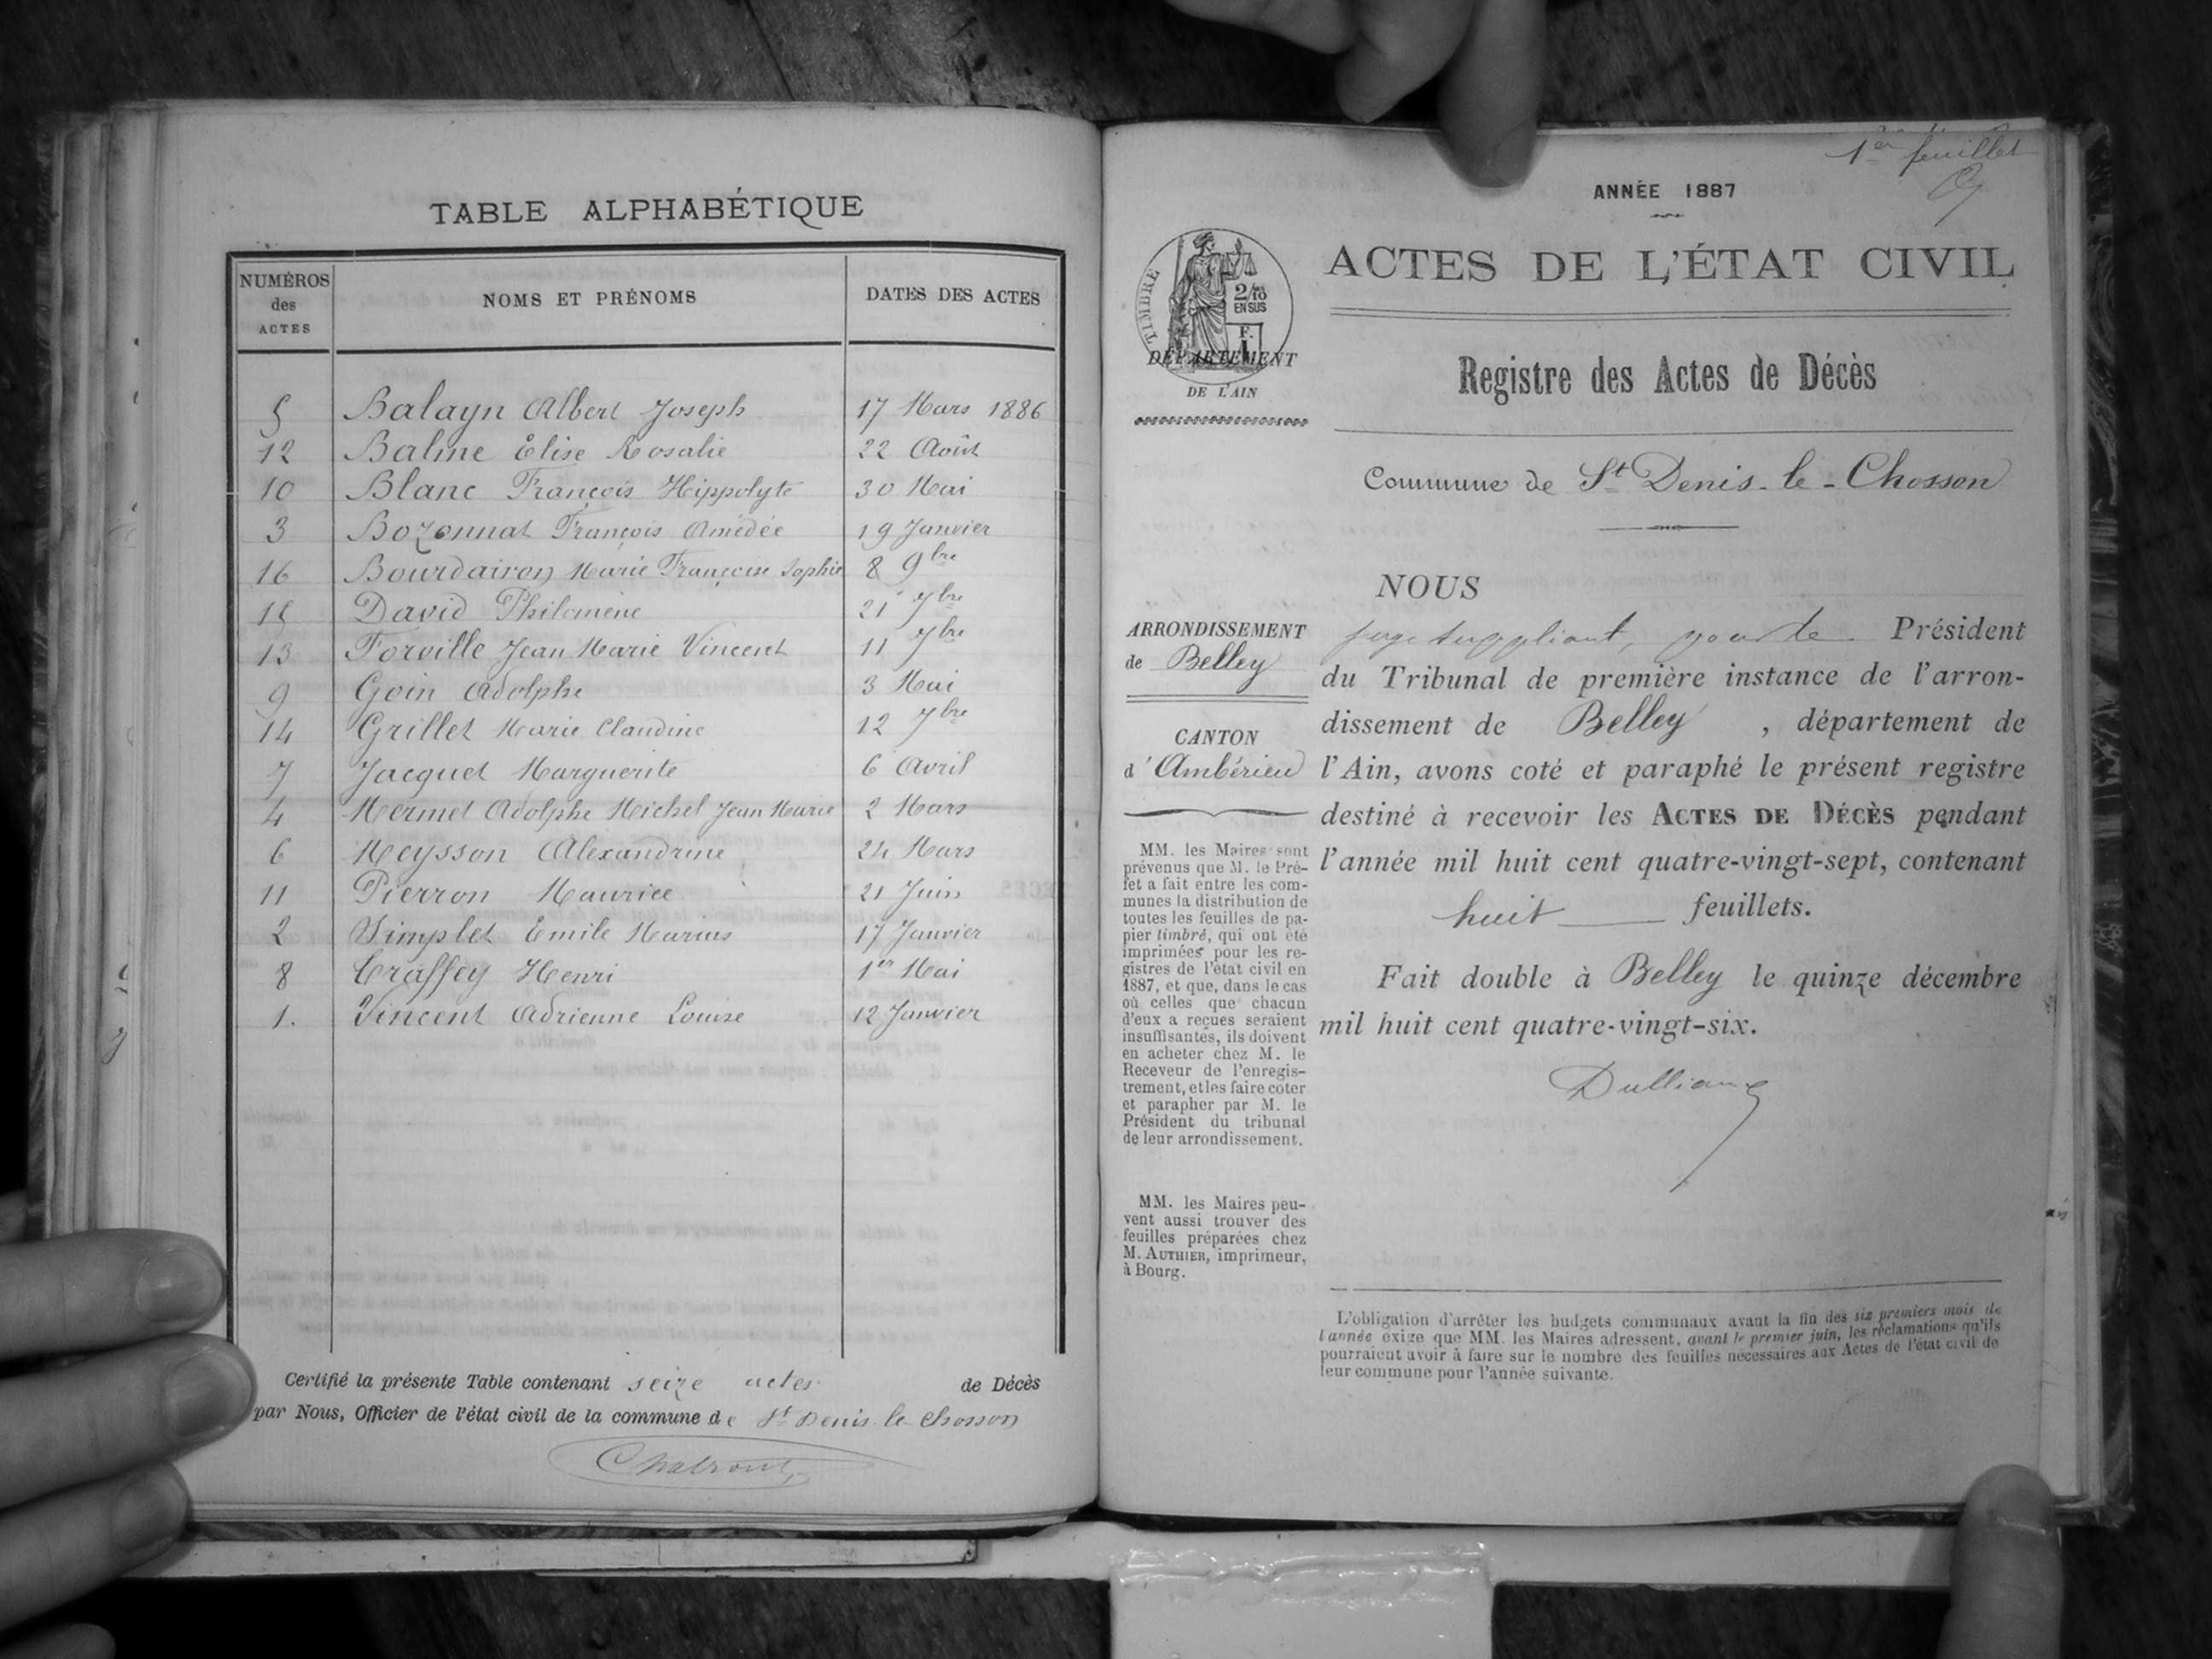 TABLE ALPHABÉTIQUE
NUMÉROS des ACTES NOMS ET PRÉNOMS DATES DES ACTES
5 Balayn Albert Joseph 17 Mars 1886
12 Balme Élise Rosalie 22 Août
10 Blanc François Hippolyte 30 Mai
3 Bozonnat François Amédée 19 Janvier
16 Bourdairon Marie Françoise Sophie 8 9bre
15 David Philomène 21 7bre
13 Forville Jean Marie Vincent 11 7bre
9 Goin Adolphe 3 Mai
14 Grillet Marie Claudine 12 7bre
7 Jacquet Marguerite 6 Avril
4 Mermet Adolphe Michel Jean Marie 2 Mars
6 Meysson Alexandrine 24 Mars
11 Pierron Maurice 21 Juin
2 Simplet Emile Marius 17 Janvier
8 Traffey Henri 1er Mai
1. Vincent Adrienne Louise 12 Janvier
Certifié la présente Table contenant seize actes de Décès
par Nous, Officier de l'état civil de la commune de St Denis-le-Chosson
1er feuillet
ANNÉE 1887
TIMBRE
2/10 EN SUS
F. 1
DÉPARTEMENT
DE L'AIN
ACTES DE L'ÉTAT CIVIL
Registre des Actes de Décès
Commune de St Denis-le-Chosson
ARRONDISSEMENT
de Belley
CANTON
d'Ambérieu
MM. les Maires sont
prévenus que M. le Pré-
fet a fait entre les com-
munes la distribution de
toutes les feuilles de pa-
pier timbré, qui ont été
imprimées pour les re-
gistres de l'état civil en
1887, et que, dans le cas
où celles que chacun
d'eux a reçues seraient
insuffisantes, ils doivent
en acheter chez M. le
Receveur de l'enregis-
trement, et les faire coter
et parapher par M. le
Président du tribunal
de leur arrondissement.
MM. les Maires peu-
vent aussi trouver des
feuilles préparées chez
M. AUTHIER, imprimeur,
à Bourg.
NOUS
juge suppléant, pour le Président
du Tribunal de première instance de l'arron-
dissement de Belley, département de
l'Ain, avons coté et paraphé le présent registre
destiné à recevoir les ACTES DE DÉCÈS pendant
l'année mil huit cent quatre-vingt-sept, contenant
huit feuillets.
Fait double à Belley le quinze décembre
mil huit cent quatre-vingt-six.
L'obligation d'arrêter les budgets communaux avant la fin des six premiers mois de
l'année exige que MM. les Maires adressent, avant le premier juin, les réclamations qu'ils
pourraient avoir à faire sur le nombre des feuilles nécessaires aux Actes de l'état civil de
leur commune pour l'année suivante.